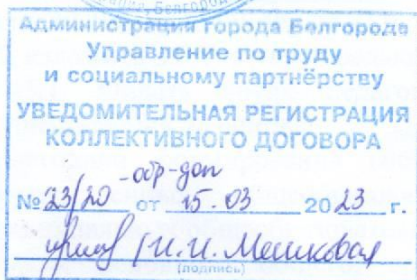 Белгород
Администрация города Белгорода
Управление по труду
и социальному партнёрству
УВЕДОМИТЕЛЬНАЯ РЕГИСТРАЦИЯ
КОЛЛЕКТИВНОГО ДОГОВОРА
-обр-доп
№ 23/20 от 15.03 2023 г.
(И.И. Мешкова)
(подпись)